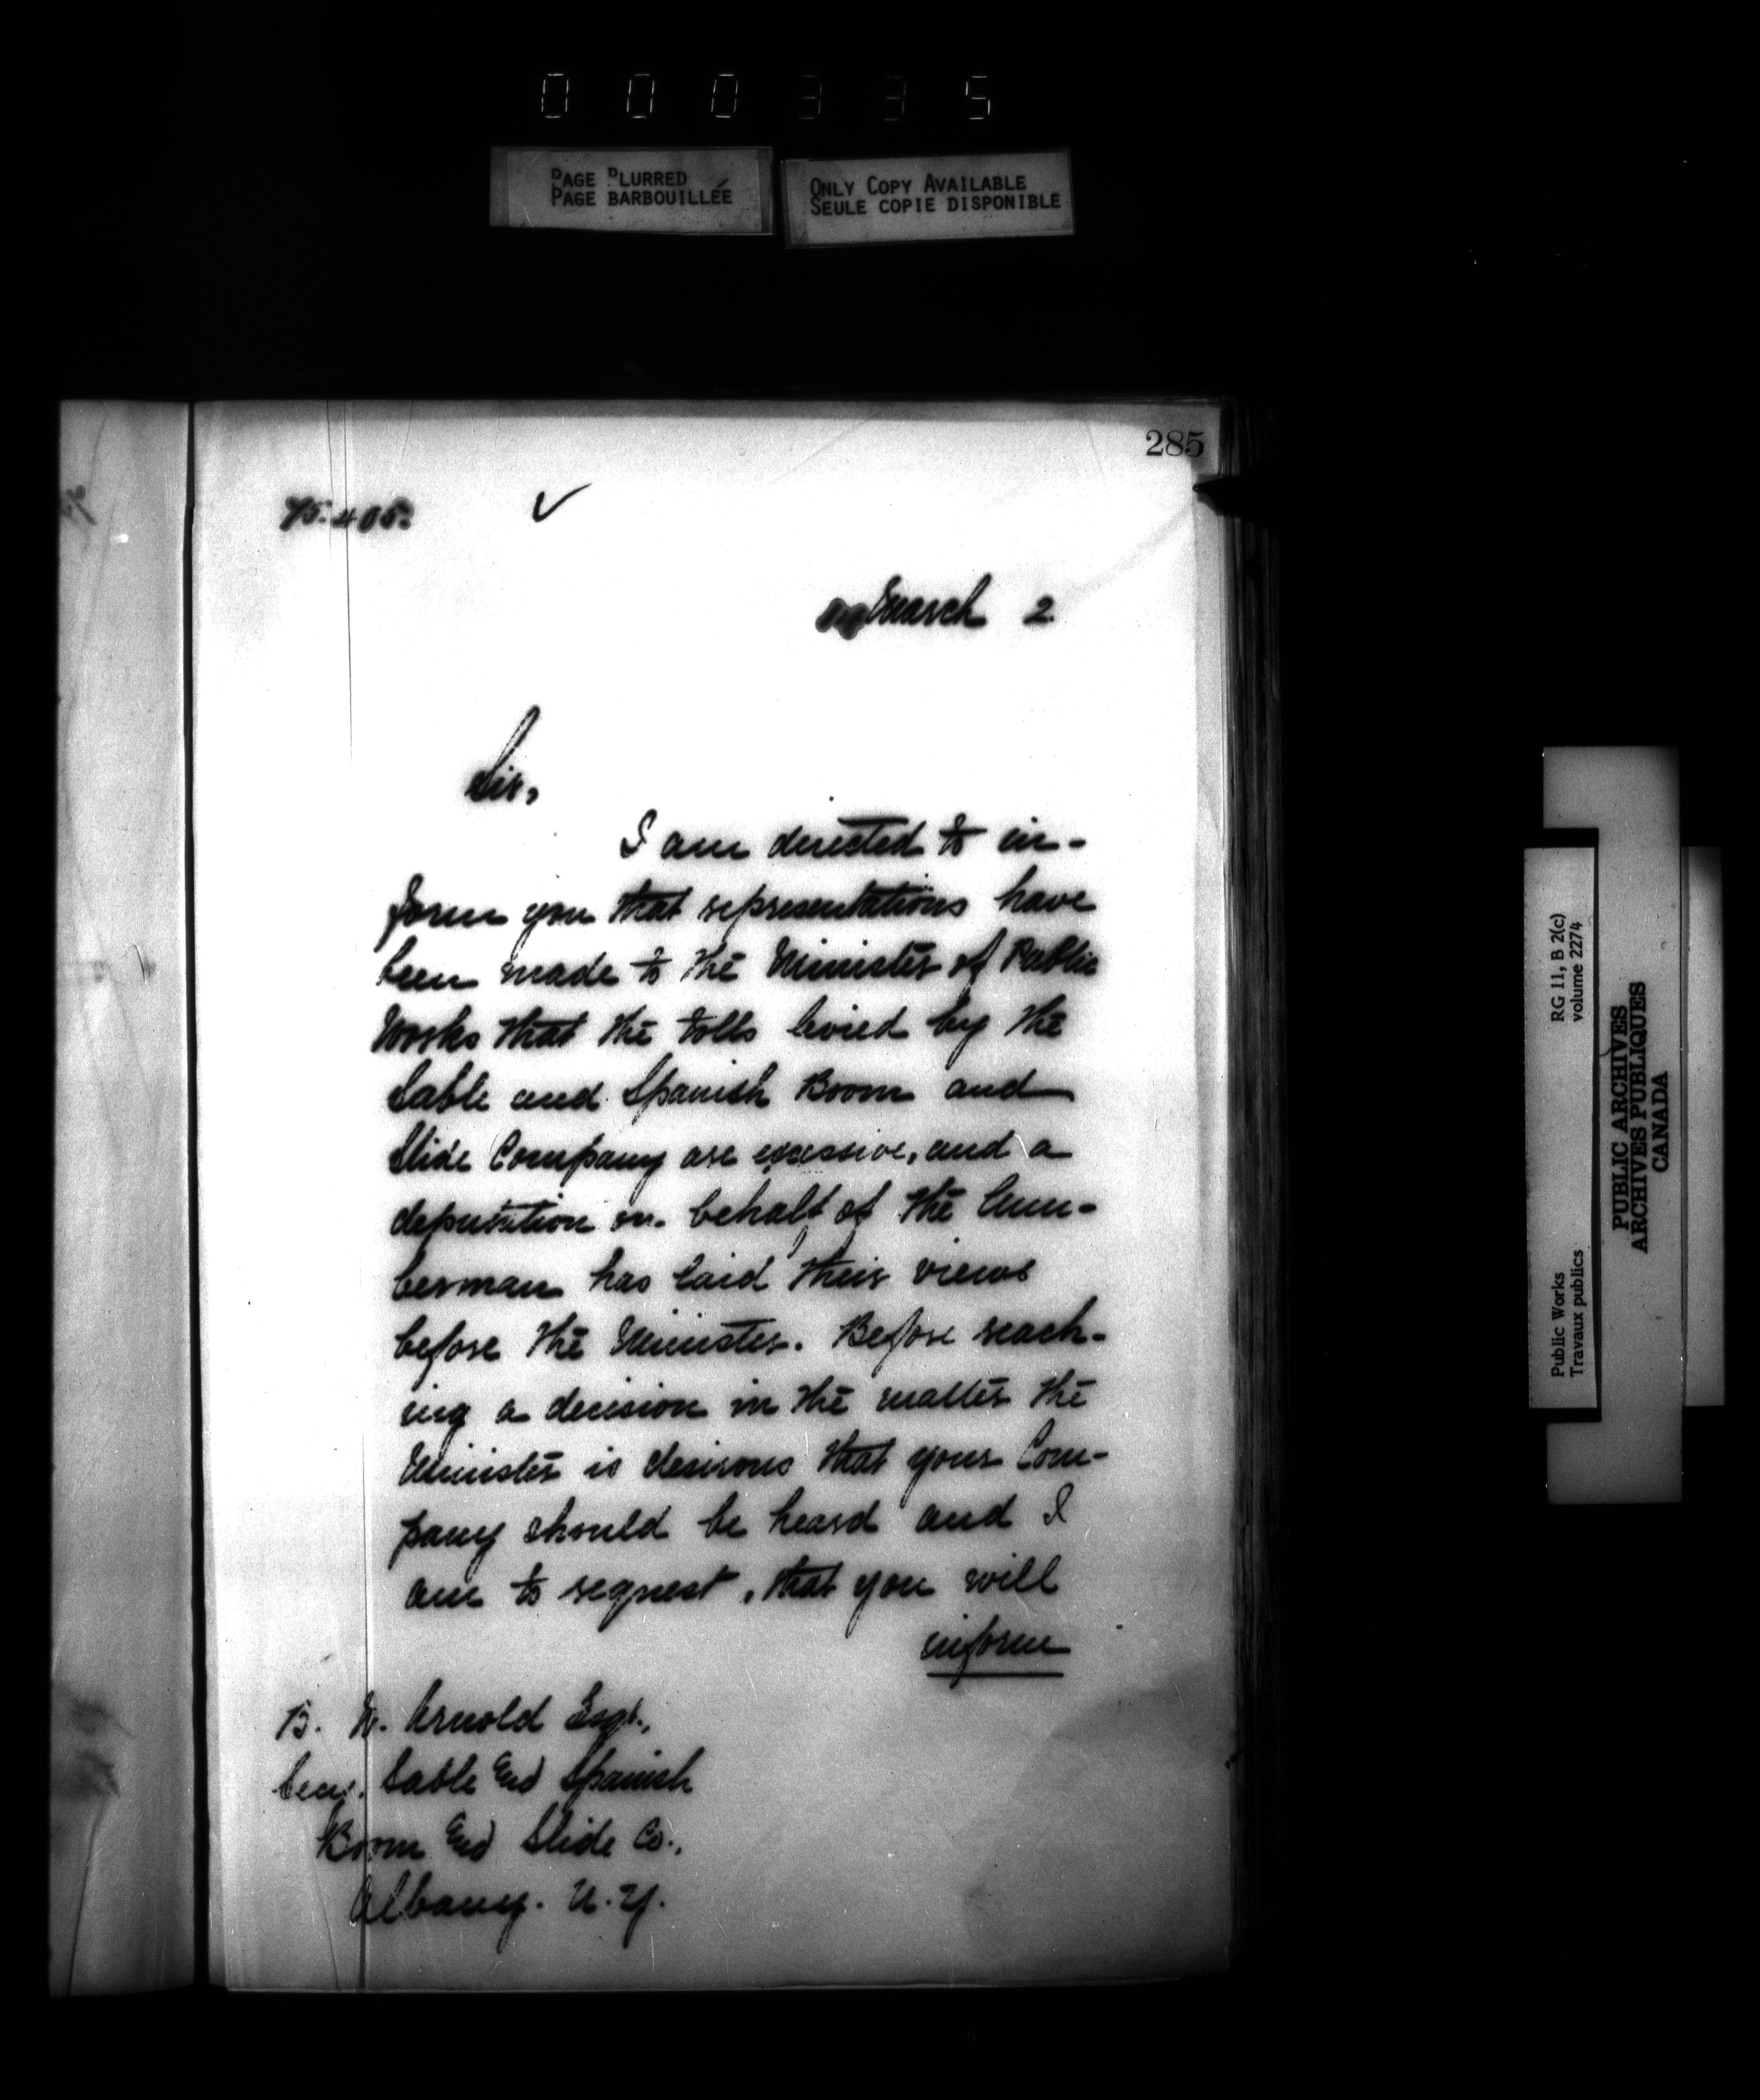 000335
PAGE BLURRED
PAGE BARBOUILLÉE
ONLY COPY AVAILABLE
SEULE COPIE DISPONIBLE
285
March 2
Sir,
I am directed to in-
form you that representations have
been made to the Minister of Public
Works that the tolls levied by the
Sable and Spanish Boom and
Slide Company are excessive, and a
deputation on behalf of the lum-
berman has laid their views
before the Minister. Before reach-
ing a decision in the matter the
Minister is desirous that your Com-
pany should be heard and I
am to request, that you will
inform
B. W. Arnold Esqr.,
Sable and Spanish
Boom and Slide Co.,
Albany. N.Y.
Public Works
Travaux publics
RG 11, B 2(c)
volume 2274
PUBLIC ARCHIVES
ARCHIVES PUBLIQUES
CANADA